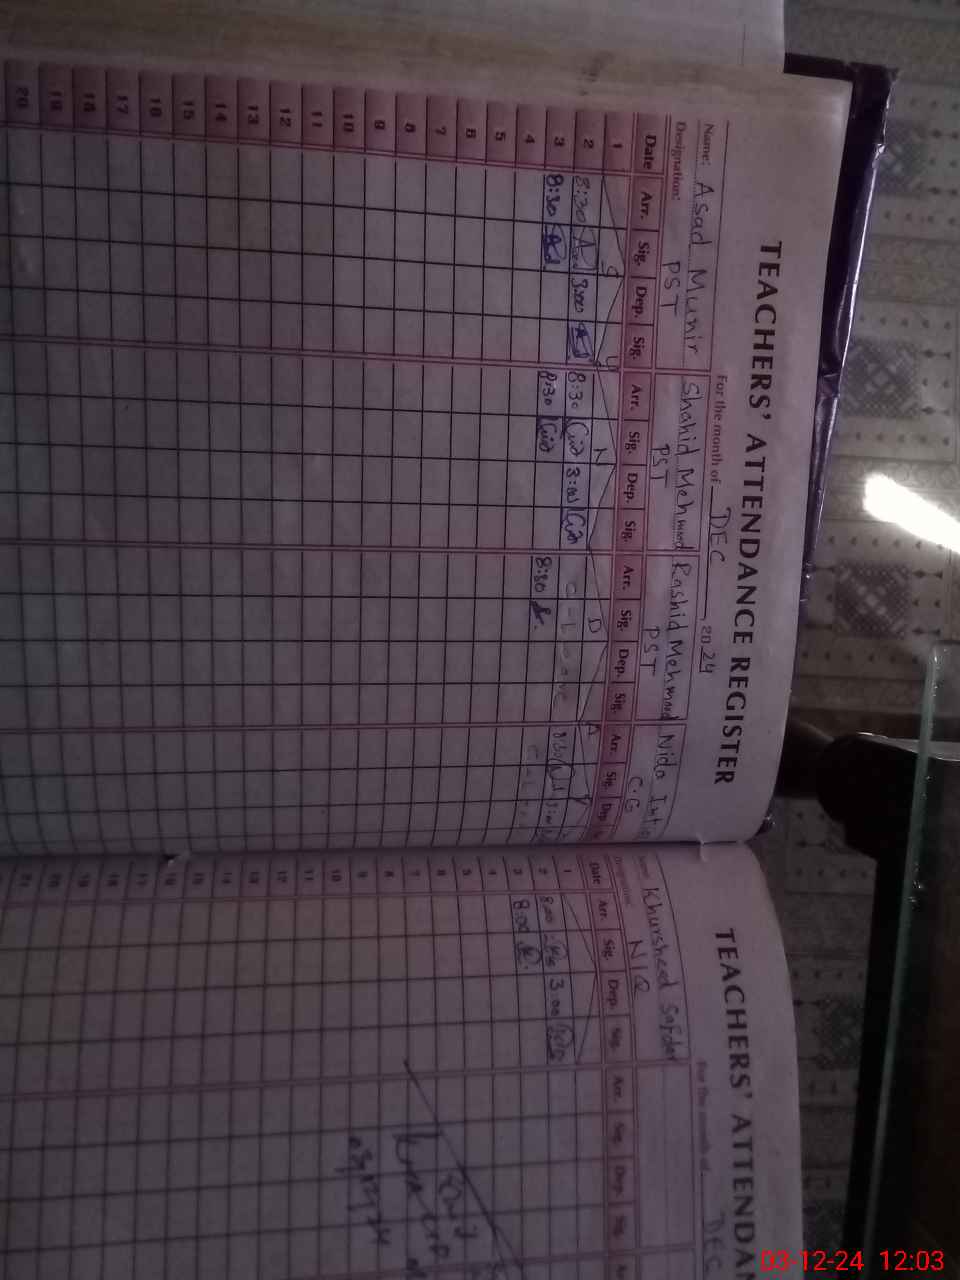 TEACHERS' ATTENDANCE REGISTER
For the month of DEC 2024
Name: Asad Munir Shahid Mehmood Rashid Mehmood Nida
Designation: PST PST PST C.G
Date Arr. Sig. Dep. Sig. Arr. Sig. Dep. Sig. Arr. Sig. Dep. Sig. Arr. Sig. Dep.
1 S U N D A Y
2 8:30 3:00 8:30 3:00 C-Leave 8:30
3 8:30 8:30 8:30 C-L
4
5
6
7
8
9
10
11
12
13
14
15
16
17
18
19
20
TEACHERS' ATTENDAN
For the month of DEC
Name: Khursheed Safdar
Designation: N/Q
Date Arr. Sig. Dep. Sig. Arr. Sig. Dep. Sig.
1
2 8:00 3:00
3 8:00
4
5
6
7
8
9
10
11
12
13
14
15
16
17
18
19
20
21
03-12-24 12:03